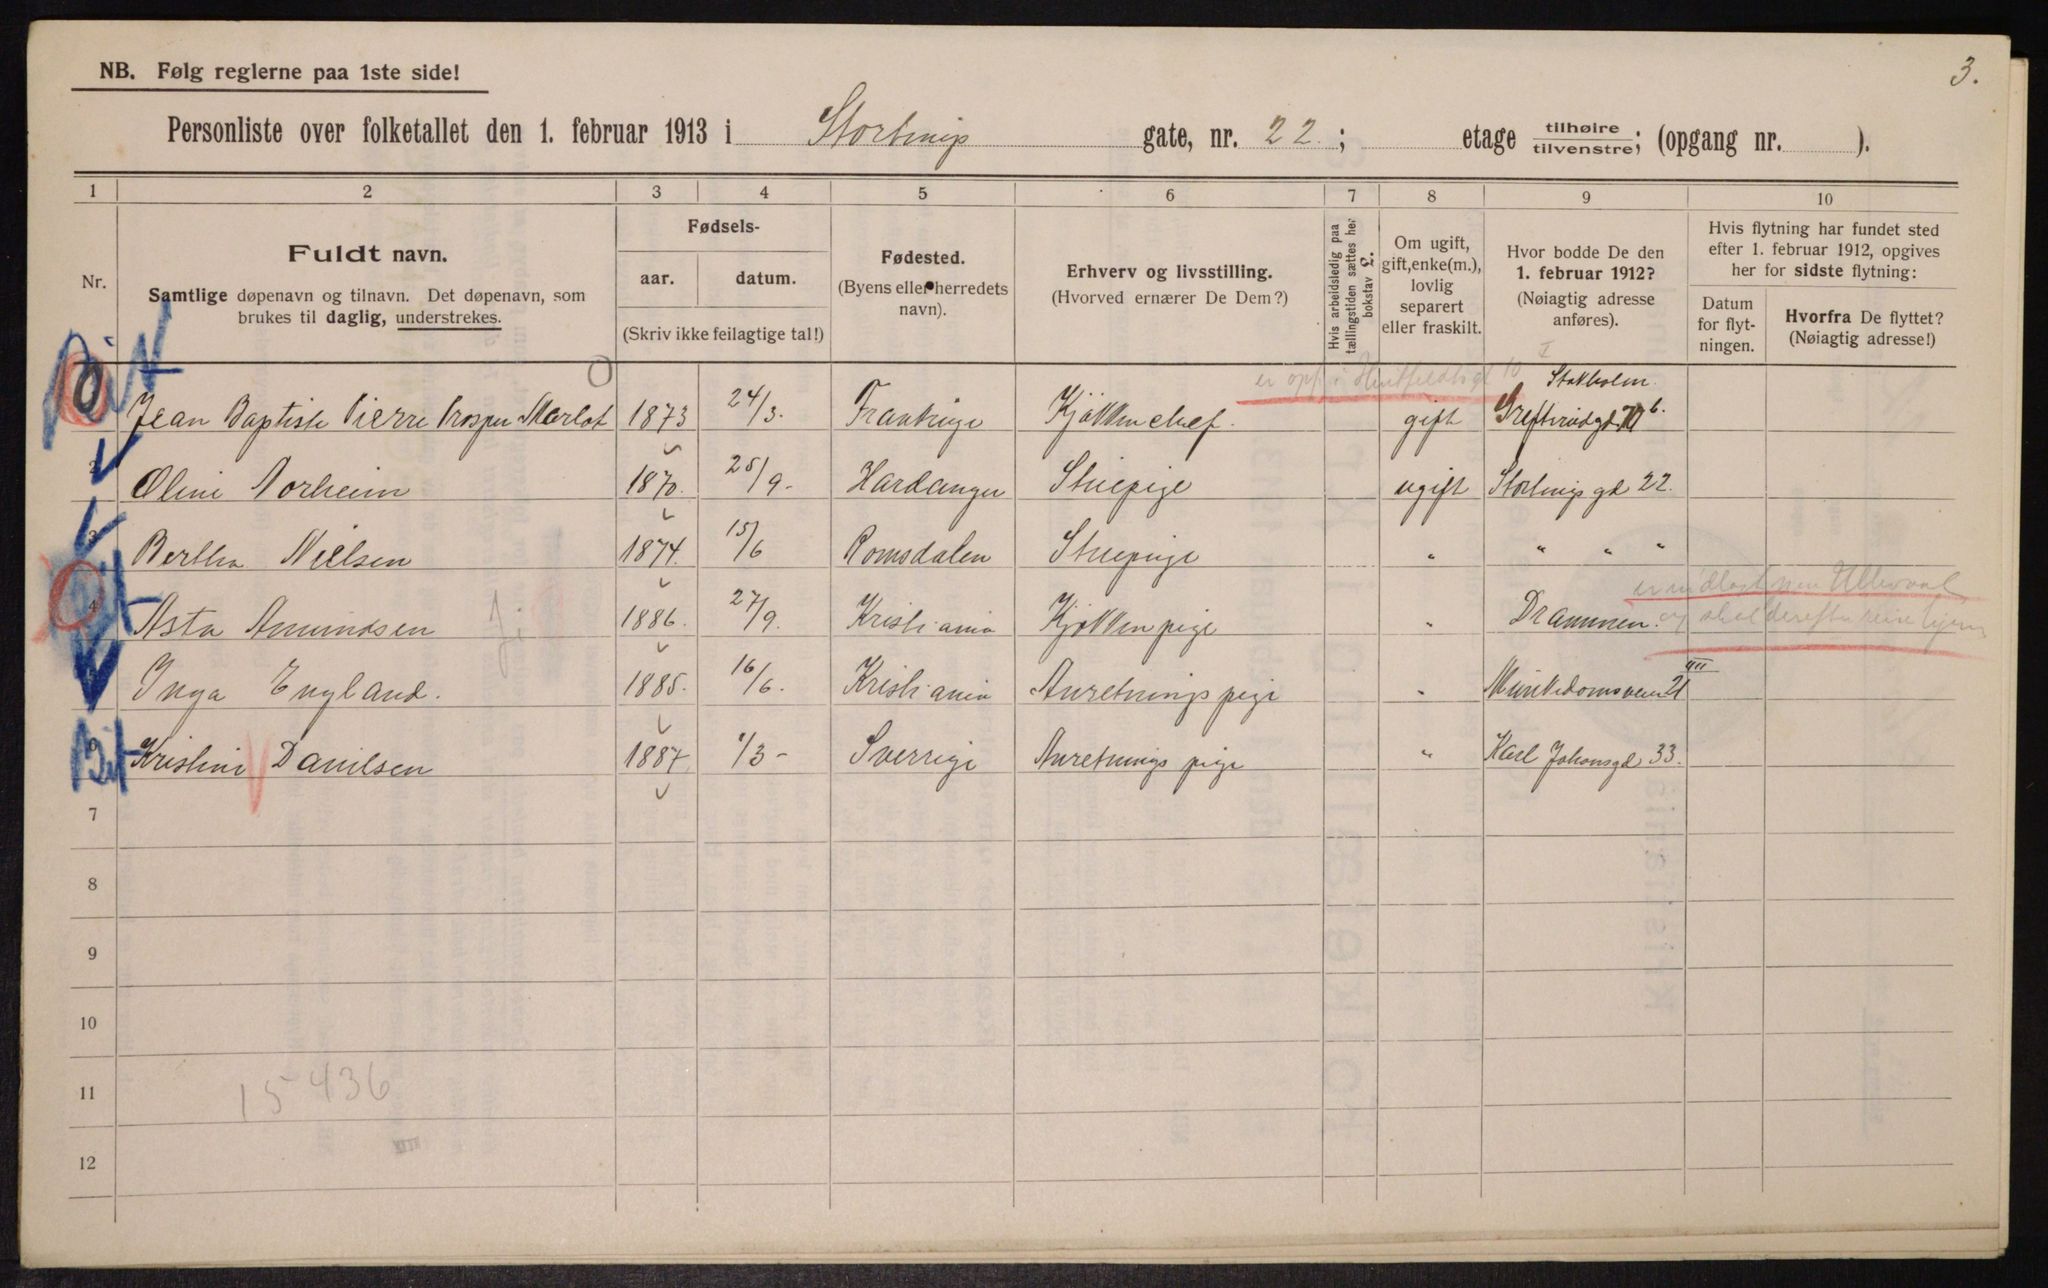 3.
NB. Følg reglerne paa 1ste side!
Personliste over folketallet den 1. februar 1913 i Stortings gate, nr. 22. ; etage tilhøire tilvenstre; (opgang nr. ).
1 2 3 4 5 6 7 8 9 10
Nr.
Fuldt navn.
Samtlige døpenavn og tilnavn. Det døpenavn, som
brukes til daglig, understrekes.
Fødsels-
aar. datum.
(Skriv ikke feilagtige tal!)
Fødested.
(Byens eller herredets
navn).
Erhverv og livsstilling.
(Hvorved ernærer De Dem?)
Hvis arbeidsledig paa
tællingstiden sættes her
bokstav L.
Om ugift,
gift, enke(m.),
lovlig
separert
eller fraskilt.
Hvor bodde De den
1. februar 1912?
(Nøiagtig adresse
anføres).
Hvis flytning har fundet sted
efter 1. februar 1912, opgives
her for sidste flytning:
Datum
for flyt-
ningen.
Hvorfra De flyttet?
(Nøiagtig adresse!)
er opf. i 10
Stokholm.
Jean Baptiste Pierre Prosper Marlot 1873 24/3. Frankrige Kjøkkenchef. gift
2 Oline Norheim 1870. 25/9- Hardanger Stuepige ugift Stortings gd 22.
3 Bertha Nielsen 1874. 15/6 Romsdalen Stuepige " " " "
4 Asta Amundsen 1886. 27/9. Kristiania Kjøkkenpige " Drammen.
Inga England. 1885. 16/6. Kristiania Anretningspige " Munkedamsveien 21 III
6 Kristine Danielsen 1887. 1/3- Sverrige Anretningspige " Karl Johansgd 33.
7
8
9
10
11
15436
12